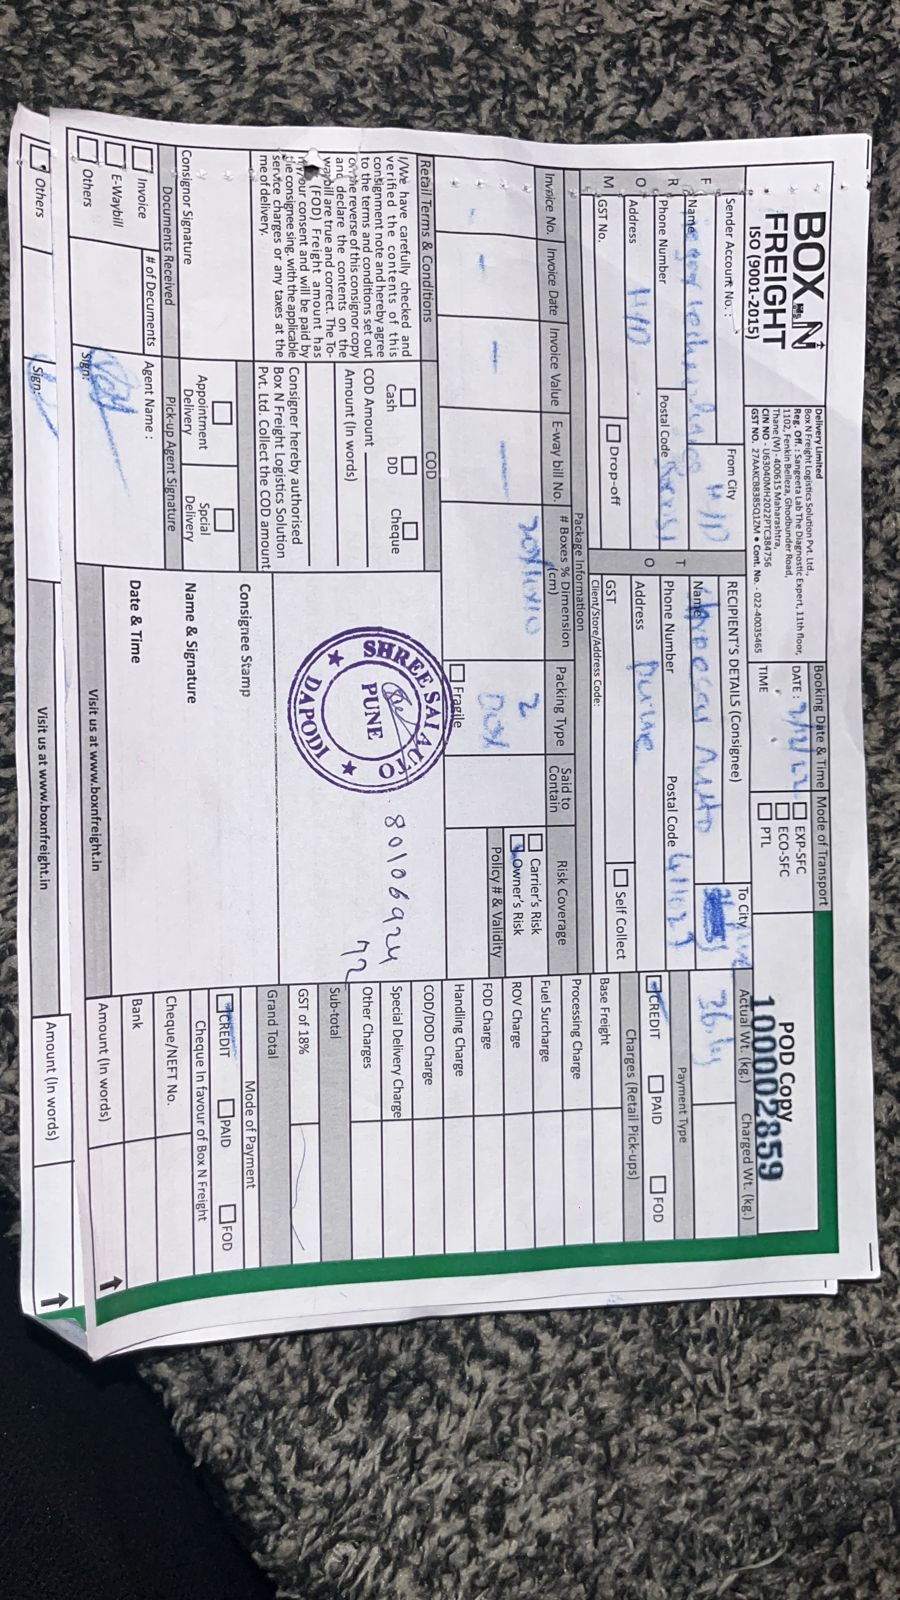 BOX N
FREIGHT
ISO (9001-2015)
Delivery Limited
Box N Freight Logistics Solution Pvt. Ltd.,
Reg. Off. : Sangeeta Lab The Diagnostic Expert, 11th floor,
1102, Fenkin Belleza, Ghodbunder Road,
Thane (W) - 400615 Maharashtra,
CIN NO - U63040MH2022PTC384756
GST NO. 27AAKCB8385Q1ZM • Cont. No. - 022-40035465
Booking Date & Time
DATE : 2/12/22
TIME
Mode of Transport
EXP-SFC
ECO-SFC
PTL
POD Copy
100002859
Sender Account No. :
From City
H/D
FROM
Name
Phone Number
Postal Code
Address H/D
GST No.
Drop-off
TO
RECIPIENT'S DETAILS (Consignee)
To City
Name Auto
Phone Number
Postal Code 411027
Address Pune
GST
Self Collect
Client/Store/Address Code:
Actual Wt. (kg.)
Charged Wt. (kg.)
36.kg
Payment Type
CREDIT PAID FOD
Charges (Retail Pick-ups)
Base Freight
Processing Charge
Fuel Surcharge
ROV Charge
FOD Charge
Handling Charge
COD/DOD Charge
Special Delivery Charge
Other Charges
Sub-total
GST of 18%
Grand Total
Package Informatioon
Invoice No.
Invoice Date
Invoice Value
E-way bill No.
# Boxes % Dimension
(cm)
Packing Type
2
Box
Fragile
Said to
Contain
Risk Coverage
Carrier's Risk
Owner's Risk
Policy # & Validity
Retail Terms & Conditions
I/We have carefully checked and
verified the contents of this
consignment note and hereby agree
to the terms and conditions set out
on the reverse of this consignor copy
and declare the contents on the
waybill are true and correct. The To-
(FOD) Freight amount has
my/our consent and will be paid by
the consignee sing. with the applicable
service charges or any taxes at the
me of delivery.
Consignor Signature
COD
Cash DD Cheque
COD Amount
Amount (In words)
Consigner hereby authorised
Box N Freight Logistics Solution
Pvt. Ltd. Collect the COD amount
Appointment
Delivery
Spcial
Delivery
SHREE SAI AUTO
PUNE
★ DAPODI ★
80106924
72
Consignee Stamp
Name & Signature
Date & Time
Mode of Payment
CREDIT PAID FOD
Cheque In favour of Box N Freight
Cheque/NEFT No.
Bank
Amount (In words)
Documents Received
Invoice
E-Waybill
Others
# of Documents
Pick-up Agent Signature
Agent Name :
Sign:
Visit us at www.boxnfreight.in
Others
Sign:
Visit us at www.boxnfreight.in
Amount (In words)